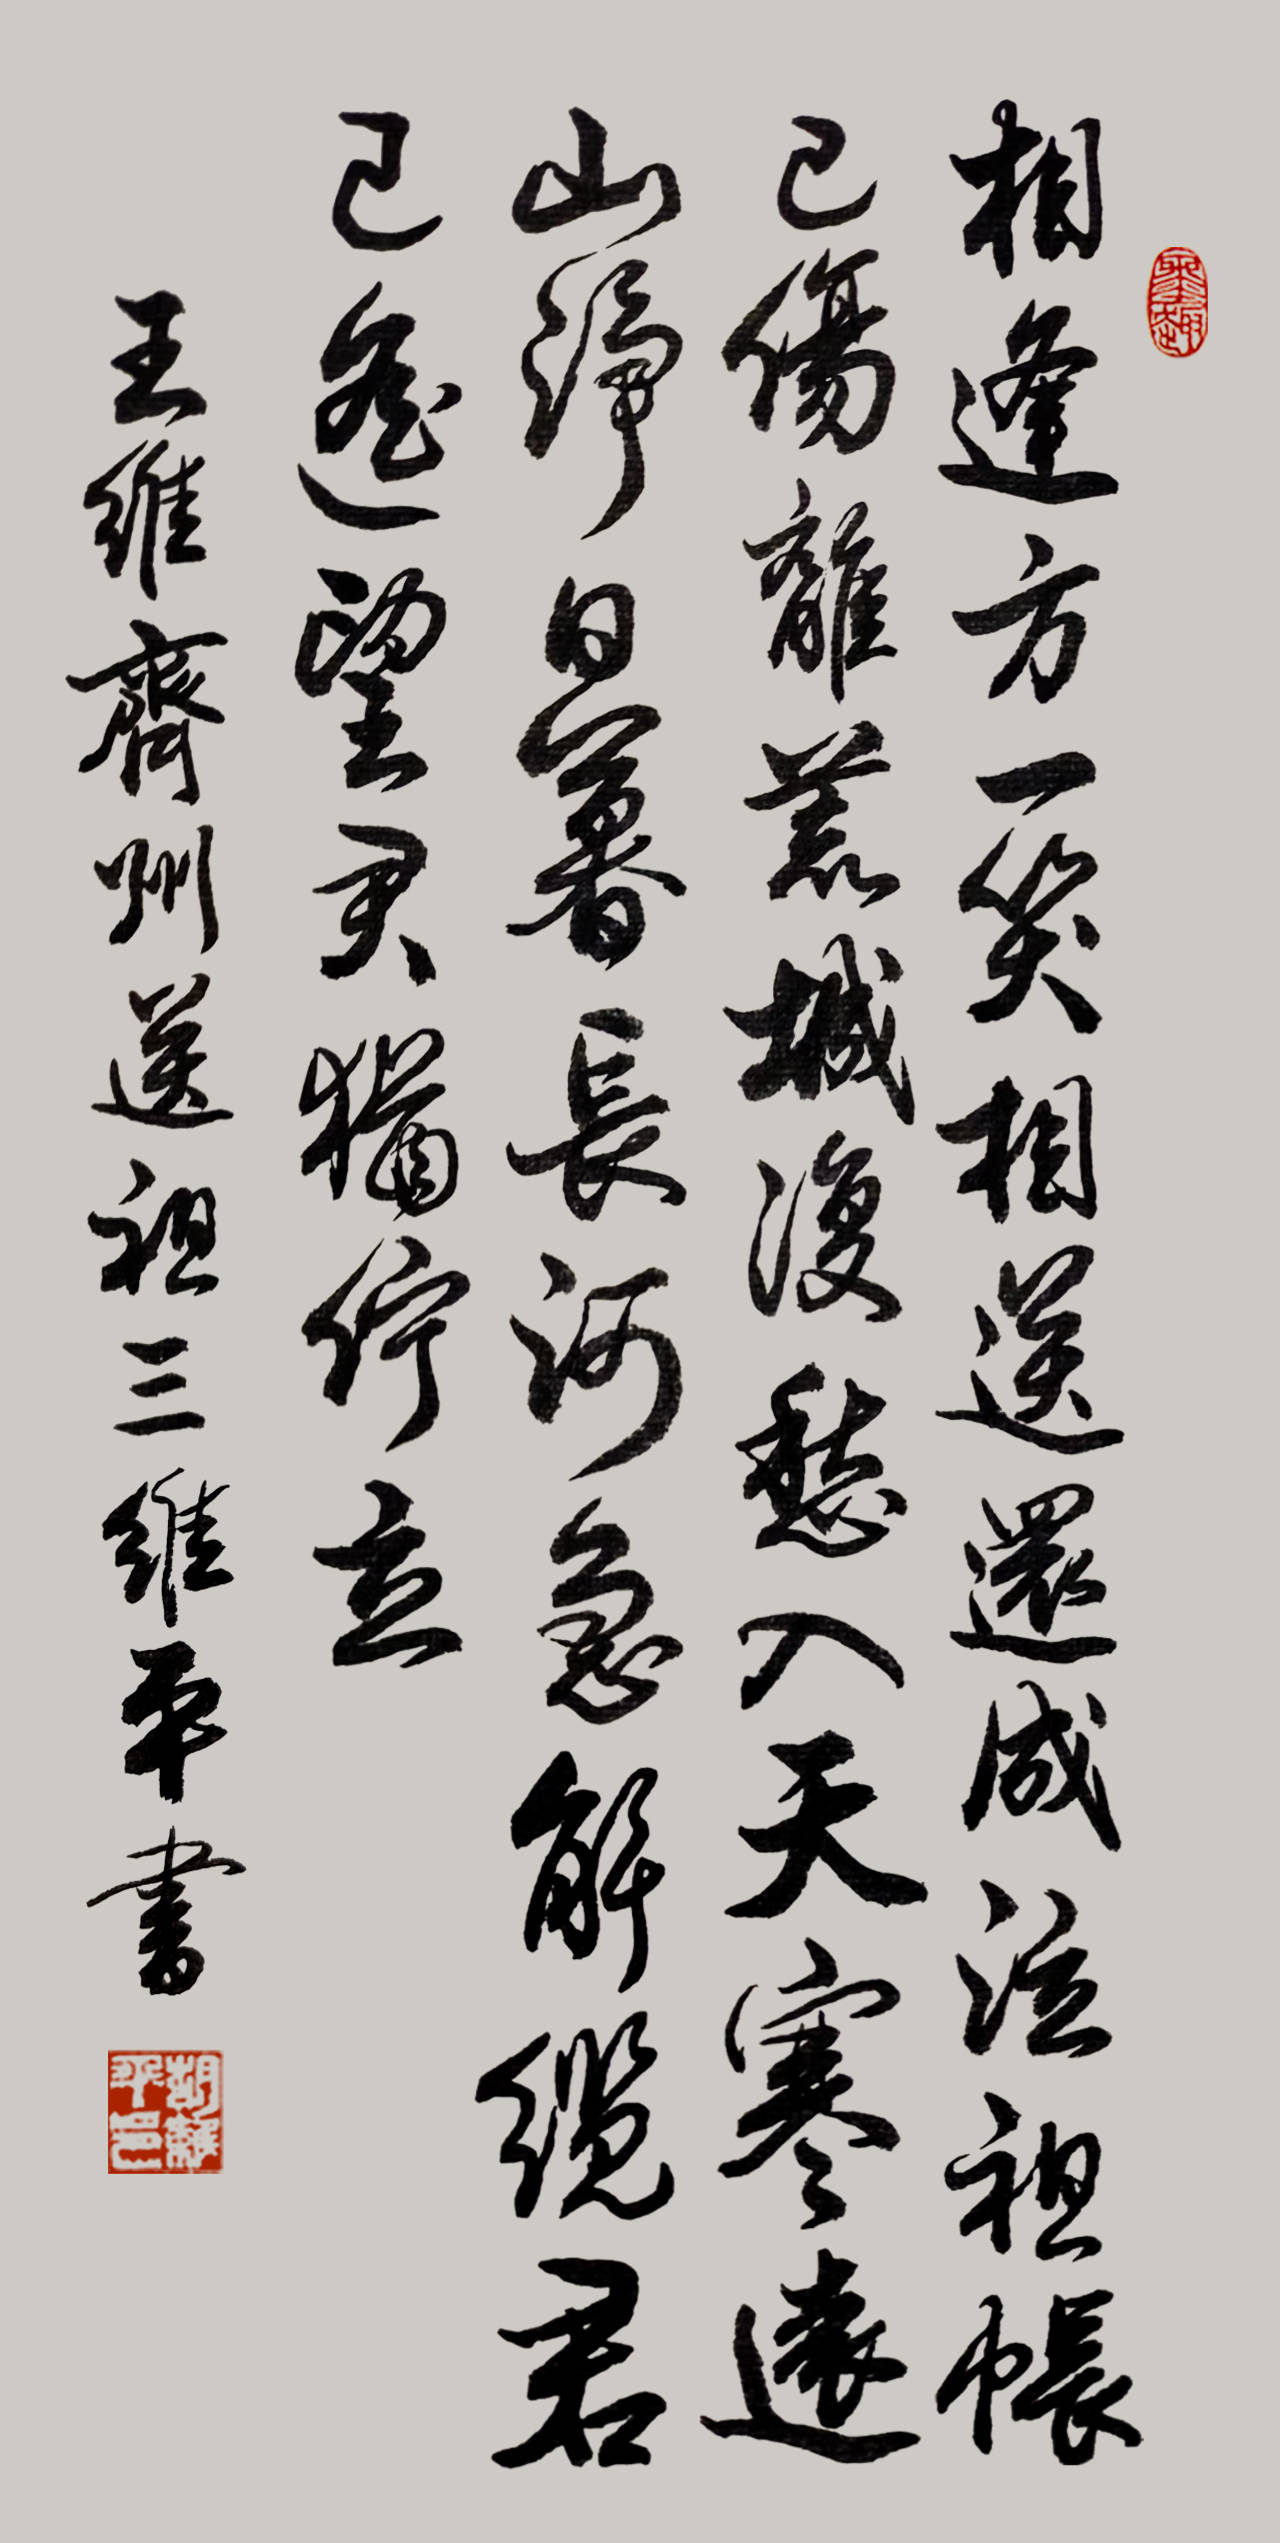 相逢方一笑相送還成泣祖帳
已傷離荒城復愁入天寒遠
山淨日暮長河急解纜君
已遙望君猶佇立
王維齊州送祖三維平書
胡維平印